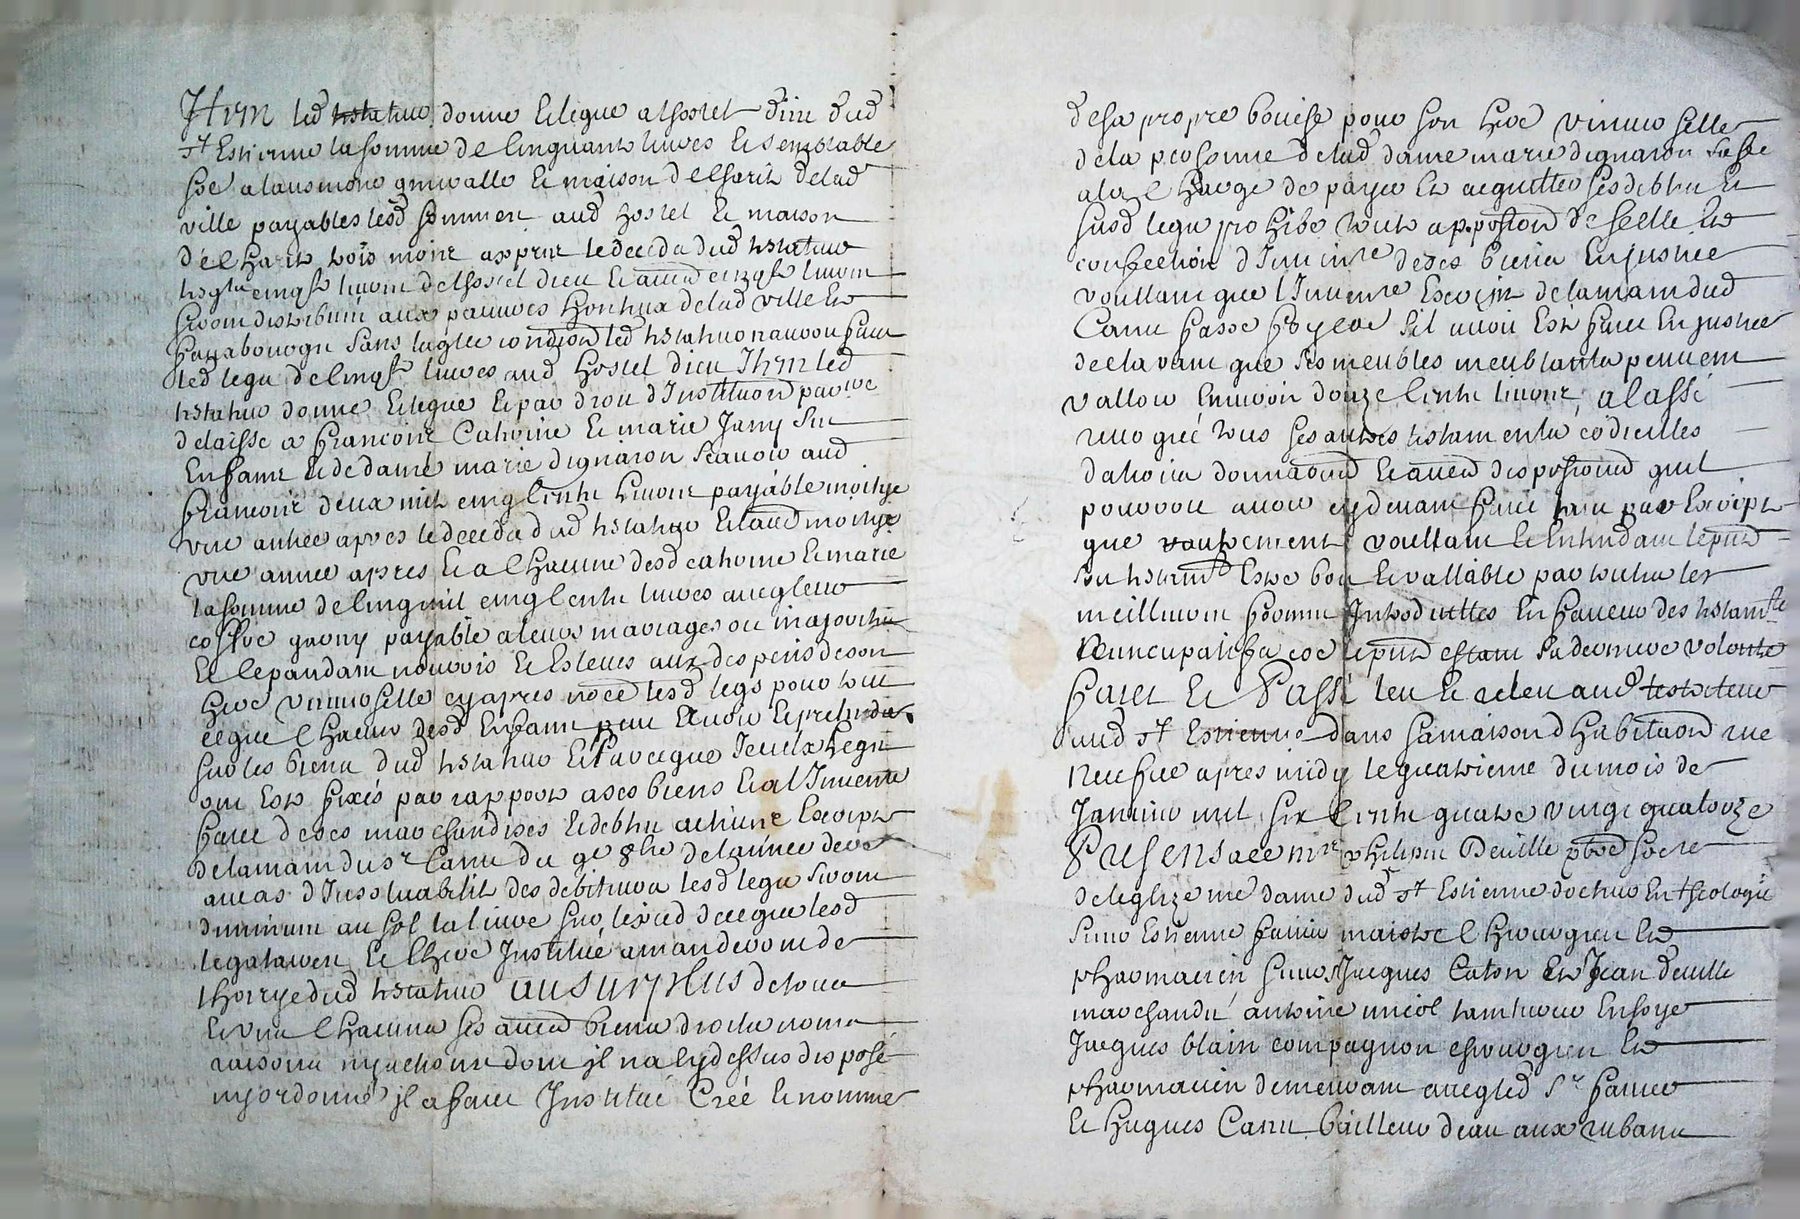 Item led testateur donne et legue a lhostel dieu dud
st Estienne la somme de cinquante livres et semblable
a laumone generalle et maison de charité de lad
ville payables lesd sommes aud hostel et maison
de charité trois mois apres le deceds dud testateur
livres de lhostel dieu et livres
seront distribués aux pauvres honteux de lad ville et
sans laquelle condition led testateur nauroit faict
led legat de livres aud hostel dieu Item led
testateur donne et legue et par droit dInstitution
delaisse a francois Catherine et marie Jamy ses
Enfans et de dame marie dignaron scavoir aud
francois deux mil cinq cents livres payable moitye
une année apres le deceds dud testateur et lautre moitye
une année apres et a chacune desd catherine et marie
la somme de cinq mil cinq cents livres avecq leur
coffre garny payable a leurs mariages ou majorité
et cependant nourris et esleves aux despens de son
here universelle cy apres nommée lesd legs pour tout
ce que chacun desd Enfans peut et prethendre
sur les biens dud testateur et Parceque Iceulx legats
ont esté fixés par rapport a ses biens et a lInventaire
faict de ses marchandises et debtes actives Escript
de la main du sr Canu du de lannée dere
au cas dInsoluabilité des debiteurs lesd legats seront
diminues au sol la livre sur le pied de ce que lesd
legataires et lhere Institué amanderont de
lhoirye dud testateur au surplus de tous
et uns chacuns ses autres biens droits noms
raisons et actions dont il na cy dessus disposé
ny ordonné il a faict Institué Créé et nommé
de sa propre bouche pour son here universelle
de la personne de lad dame marie dignaron sa fe
a la charge de payer et acquitter ses debtes et
susd legats prohibe toute apposition de scellé et
confection dInventre de ses biens En justice
voullant que lInventre Escript de la main dud
Canu fasse foy comme sil avoit esté faict En justice
declarant que ses meubles meublants peuvent
valloir environ douze cents livres, a lassé
revoqué tous ses autres testaments codicilles
donnations et autres dispositions quil
pourroit avoir cy devant faict tant par Escript
que vauttrement voullant et Entendant le pnt
son testamt Estre bon et vallable par toutes les
meilleures formes Introduittes En faveur des testamts
Nuncupatifs car le pnt estant sa derniere volonté
faict et Passé leu et releu aud testateur
aud st Estienne dans sa maison dhabitation rue
neufve apres midy le quatrieme du mois de
Janvier mil six cents quatre vingt quatorze
Presens mre philippe Deville pbre
de leglize nre dame dud st Estienne docteur En theologie
sieur Estienne faure maistre chirurgien et
pharmacien sieurs Jacques Caton et Jean deville
marchands antoine nicol En soye
Jacques blain compagnon chirurgien et
pharmacien demeurant avecq led sr faure
et hugues Canu bailleur deau aux rubans